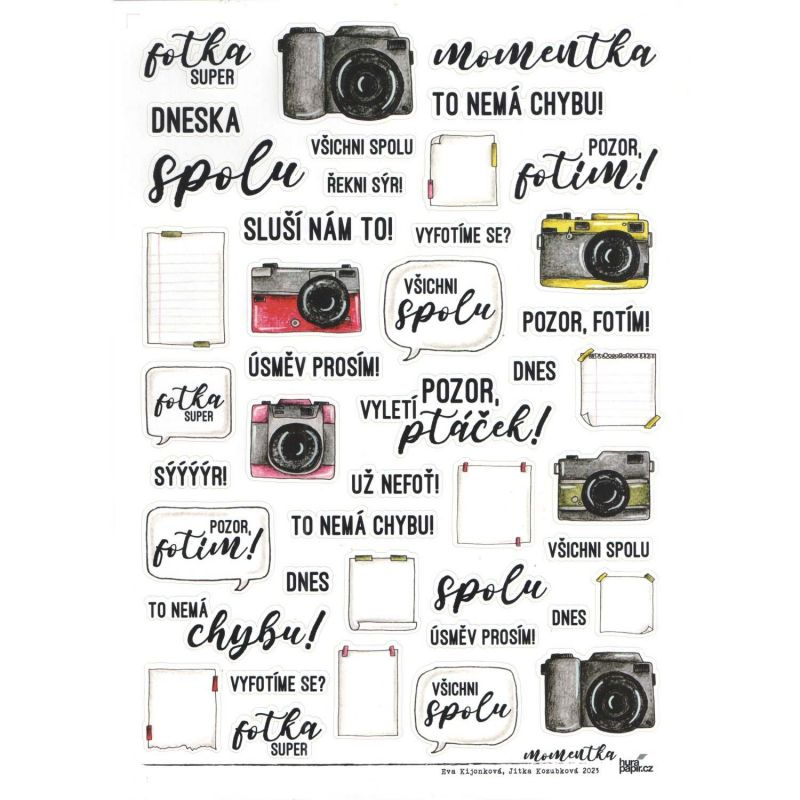 fotka
SUPER
momentka
DNESKA
TO NEMÁ CHYBU!
VŠICHNI SPOLU
POZOR,
fotím!
spolu
ŘEKNI SÝR!
SLUŠÍ NÁM TO!
VYFOTÍME SE?
VŠICHNI
spolu
POZOR, FOTÍM!
ÚSMĚV PROSÍM!
DNES
fotka
SUPER
VYLETÍ
POZOR,
ptáček!
SÝÝÝÝR!
UŽ NEFOŤ!
POZOR,
fotím!
TO NEMÁ CHYBU!
VŠICHNI SPOLU
DNES
spolu
TO NEMÁ
chybu!
DNES
ÚSMĚV PROSÍM!
VYFOTÍME SE?
VŠICHNI
spolu
fotka
SUPER
momentka
hurá
papír.cz
Eva Kijonková, Jitka Kozubková 2023